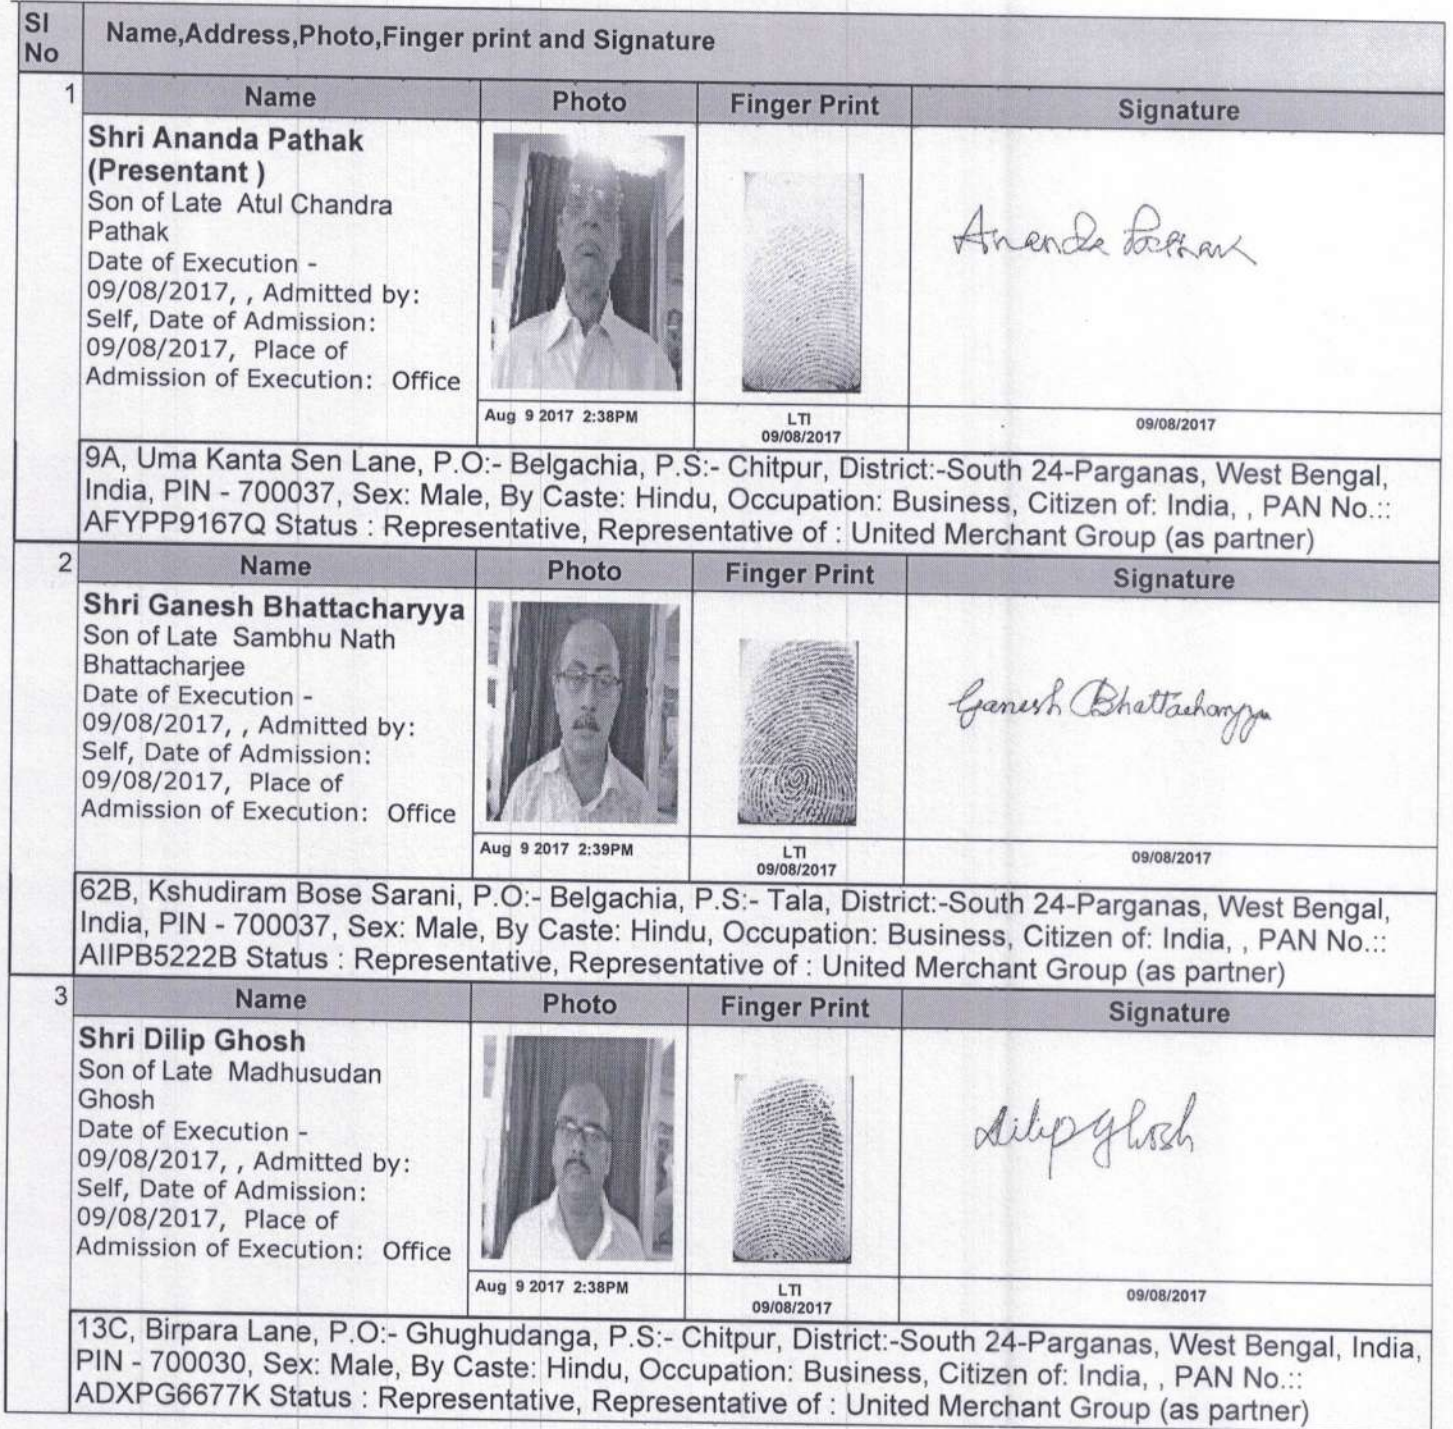 Sl No
Name,Address,Photo,Finger print and Signature
1
Name Photo Finger Print Signature
Shri Ananda Pathak
(Presentant )
Son of Late Atul Chandra
Pathak
Date of Execution -
09/08/2017, , Admitted by:
Self, Date of Admission:
09/08/2017, Place of
Admission of Execution: Office
Ananda Pathak
Aug 9 2017 2:38PM
LTI
09/08/2017
09/08/2017
9A, Uma Kanta Sen Lane, P.O:- Belgachia, P.S:- Chitpur, District:-South 24-Parganas, West Bengal,
India, PIN - 700037, Sex: Male, By Caste: Hindu, Occupation: Business, Citizen of: India, , PAN No.::
AFYPP9167Q Status : Representative, Representative of : United Merchant Group (as partner)
2
Name Photo Finger Print Signature
Shri Ganesh Bhattacharyya
Son of Late Sambhu Nath
Bhattacharjee
Date of Execution -
09/08/2017, , Admitted by:
Self, Date of Admission:
09/08/2017, Place of
Admission of Execution: Office
Ganesh Bhattacharyya
Aug 9 2017 2:39PM
LTI
09/08/2017
09/08/2017
62B, Kshudiram Bose Sarani, P.O:- Belgachia, P.S:- Tala, District:-South 24-Parganas, West Bengal,
India, PIN - 700037, Sex: Male, By Caste: Hindu, Occupation: Business, Citizen of: India, , PAN No.::
AIIPB5222B Status : Representative, Representative of : United Merchant Group (as partner)
3
Name Photo Finger Print Signature
Shri Dilip Ghosh
Son of Late Madhusudan
Ghosh
Date of Execution -
09/08/2017, , Admitted by:
Self, Date of Admission:
09/08/2017, Place of
Admission of Execution: Office
Dilip Ghosh
Aug 9 2017 2:38PM
LTI
09/08/2017
09/08/2017
13C, Birpara Lane, P.O:- Ghughudanga, P.S:- Chitpur, District:-South 24-Parganas, West Bengal, India,
PIN - 700030, Sex: Male, By Caste: Hindu, Occupation: Business, Citizen of: India, , PAN No.::
ADXPG6677K Status : Representative, Representative of : United Merchant Group (as partner)